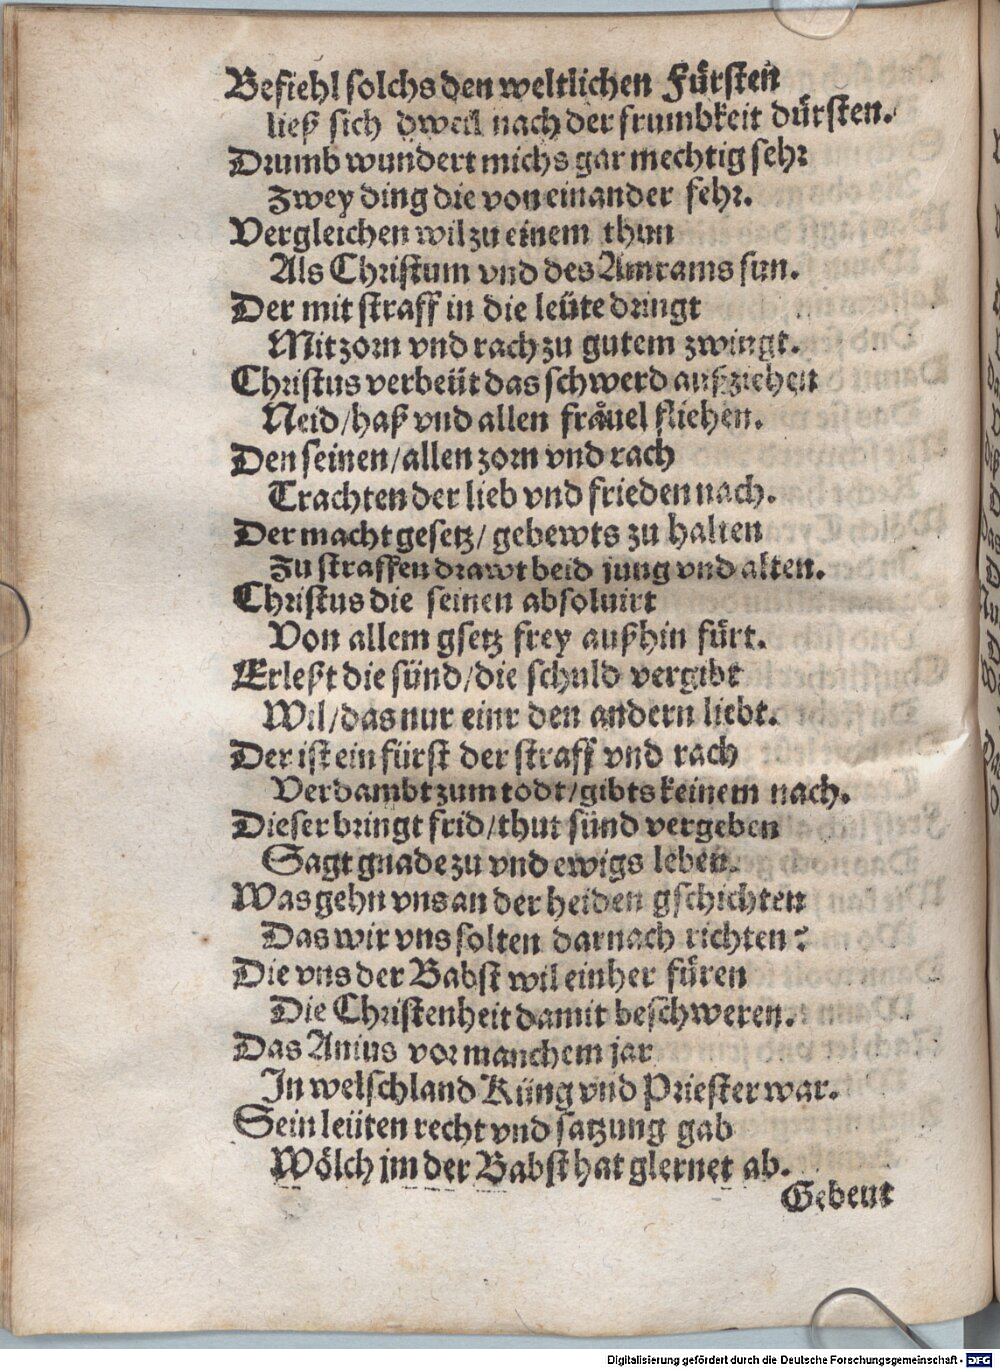 Befiehl solchs den weltlichen Fürsten
ließ sich dweil nach der frumbkeit dürsten.
Drumb wundert michs gar mechtig sehr
Zwey ding die von einander fehr.
Vergleichen wil zu einem thun
Als Christum vnd des Amrams sun.
Der mit straff in die leüte dringt
Mit zorn vnd rach zu gutem zwingt.
Christus verbeüt das schwerd außziehen
Neid/haß vnd allen fråuel fliehen.
Den seinen/allen zorn vnd rach
Trachten der lieb vnd frieden nach.
Der macht gesetz/ gebewts zu halten
Zu straffen drawt beid jung vnd alten.
Christus die seinen absoluirt
Von allem gsetz frey außhin fürt.
Erleßt die sünd/die schuld vergibt
Wil/das nur einr den andern liebt.
Der ist ein fürst der straff vnd rach
Verdambt zum todt/gibts keinem nach.
Dieser bringt frid/thut sünd vergeben
Sagt gnade zu vnd ewigs leben.
Was gehn vns an der heiden gschichten
Das wir vns solten darnach richten?
Die vns der Babst wil einher füren
Die Christenheit damit beschweren.
Das Anius vor manchem jar
In welschland Küng vnd Priester war.
Sein leüten recht vnd satzung gab
Wölch jm der Babst hat glernet ab.
Gebeut
Digitalisierung gefördert durch die Deutsche Forschungsgemeinschaft - DFG